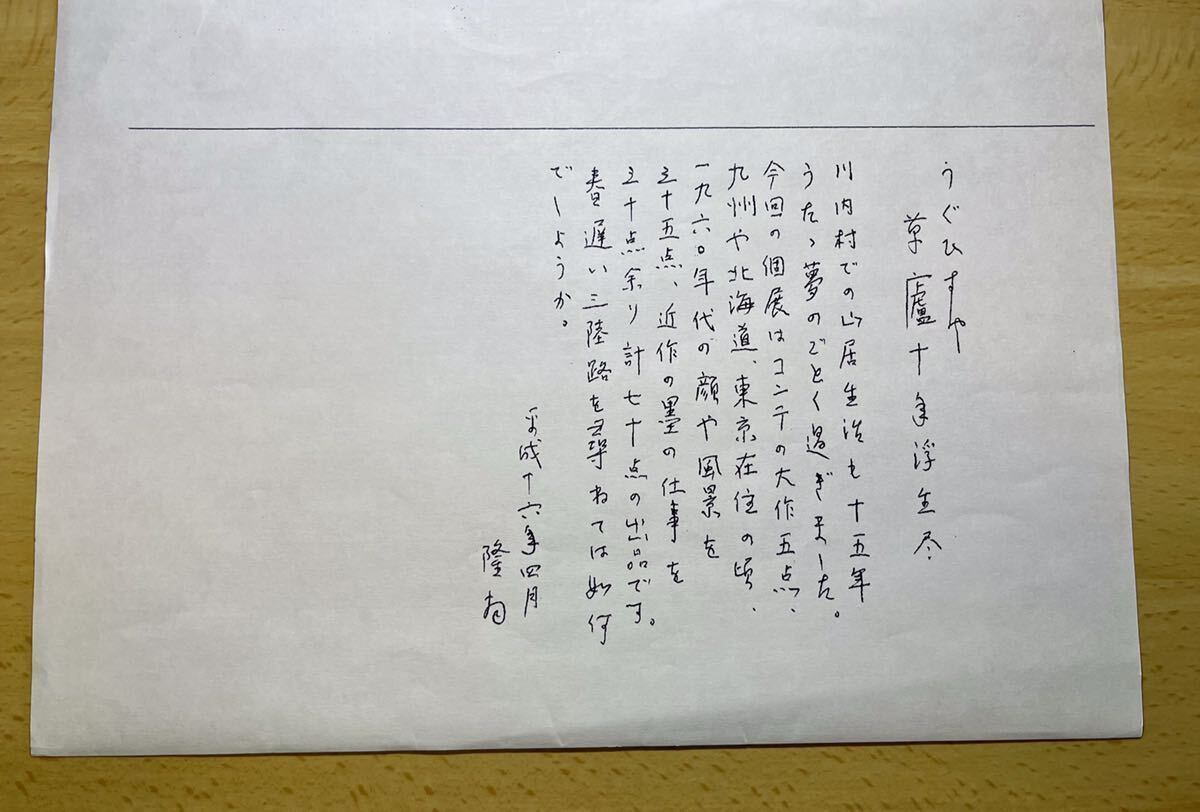 うぐひすや
草廬十年浮生尽
川内村での山居生活も十五年
うたゝ夢のごとく過ぎました。
今回の個展はコンテの大作五点、
九州や北海道、東京在住の頃、
一九六〇年代の顔や風景を
三十五点、近作の墨の仕事を
三十点余り計七十点の出品です。
春遅い三陸路を尋ねては如何
でしょうか。
平成十六年四月
隆